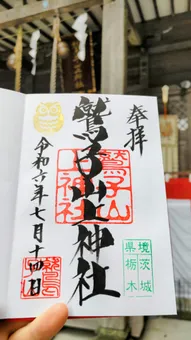 奉拝
鷲子山上神社
鷲子山
上神社
茨城
栃木
県境
令和六年七月十四日